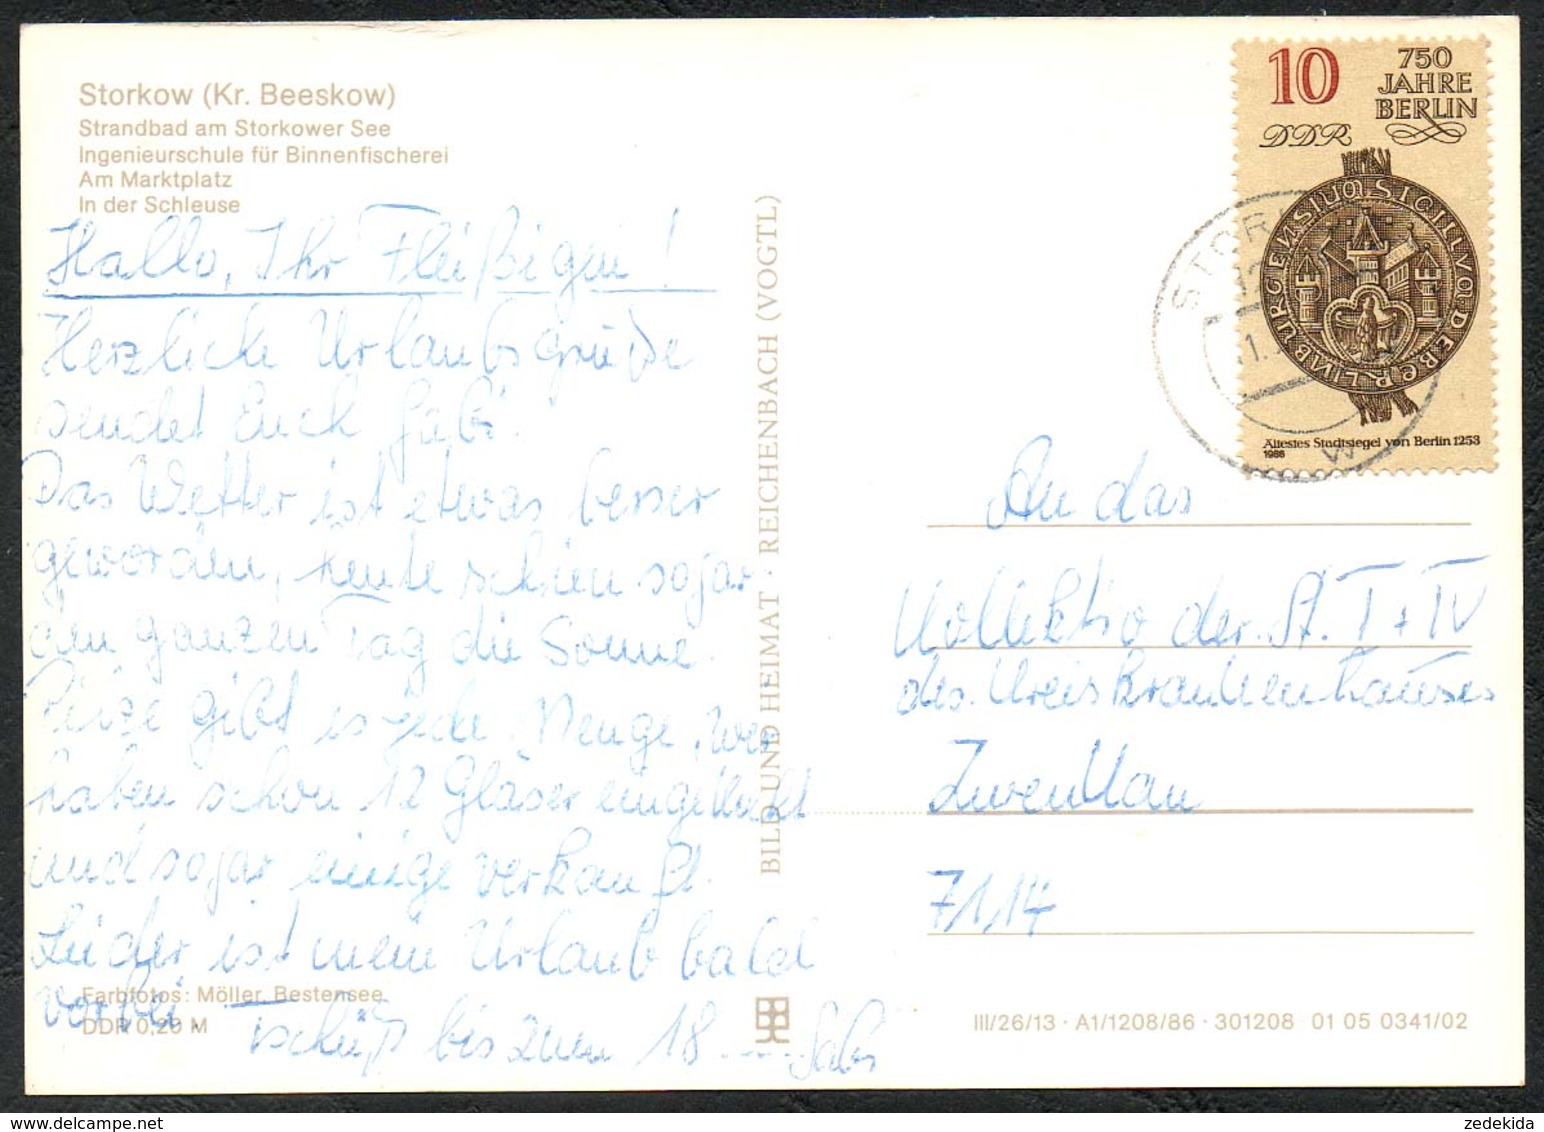 Storkow (Kr. Beeskow)
Strandbad am Storkower See
Ingenieurschule für Binnenfischerei
Am Marktplatz
In der Schleuse
Hallo, Ihr Fleißigen!
Herzliche Urlaubsgrüße
sendet Euch Gabi.
Das Wetter ist etwas besser
geworden, heute schien sogar
den ganzen Tag die Sonne.
Pilze gibt es jede Menge, wir
haben schon 12 Gläser eingekocht
und sogar einige verkauft.
Leider ist mein Urlaub bald
vorbei.
Tschüß bis zum 18. Gabi
Farbfotos: Möller, Bestensee
DDR 0,20 M
BILD UND HEIMAT · REICHENBACH (VOGTL)
10
DDR
750
JAHRE
BERLIN
SIGILLVM DE BERLIN BURGENSIUM
Ältestes Stadtsiegel von Berlin 1253
1986
STORK
An das
Kollektiv der St. I + IV
des Kreiskrankenhauses
Zwenkau
7114
III/26/13 · A1/1208/86 · 301208 01 05 0341/02
zedekida